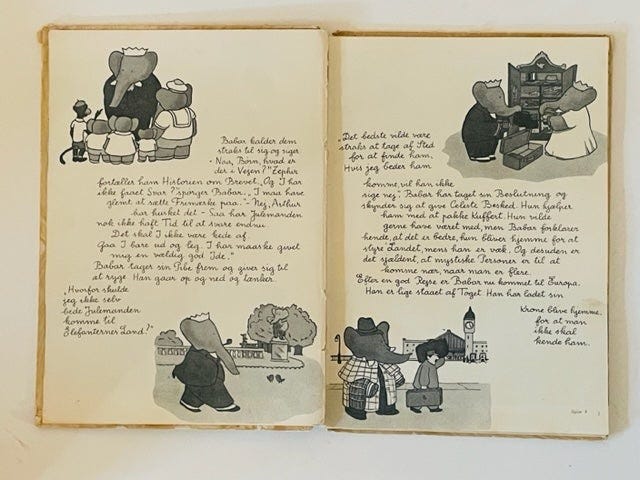 Babar kalder dem
straks til sig og siger
"Naa, Børn, hvad er
der i Vejen?" Zephir
fortæller ham Historien om Brevet. "Og I har
ikke faaet Svar?" spørger Babar. "I maa have
glemt at sætte Frimærke paa." - "Nej, Arthur
har husket det - Saa har Julemanden
nok ikke haft Tid til at svare endnu.
Det skal I ikke være kede af
Gaa I bare ud og leg. I har maaske givet
mig en vældig god Ide."
Babar tager sin Pibe frem og giver sig til
at ryge Han gaar op og ned og tænker.
"Hvorfor skulde
jeg ikke selv
bede Julemanden
komme til
Elefanternes Land?"
"Det bedste vilde være
straks at tage af Sted
for at finde ham.
Hvis jeg beder ham
komme, vil han ikke
sige nej." Babar har taget sin Beslutning og
skynder sig at give Celeste Besked. Hun hjælper
ham med at pakke Kuffert. Hun vilde
gerne have været med, men Babar forklarer
hende, at det er bedre, hun bliver hjemme for at
styre Landet, mens han er væk. Og desuden er
det sjældent, at mystiske Personer er til at
komme nær, naar man er flere.
Efter en god Rejse er Babar nu kommet til Europa.
Han er lige staaet af Toget Han har ladet sin
Krone blive hjemme,
for at man
ikke skal
kende ham.